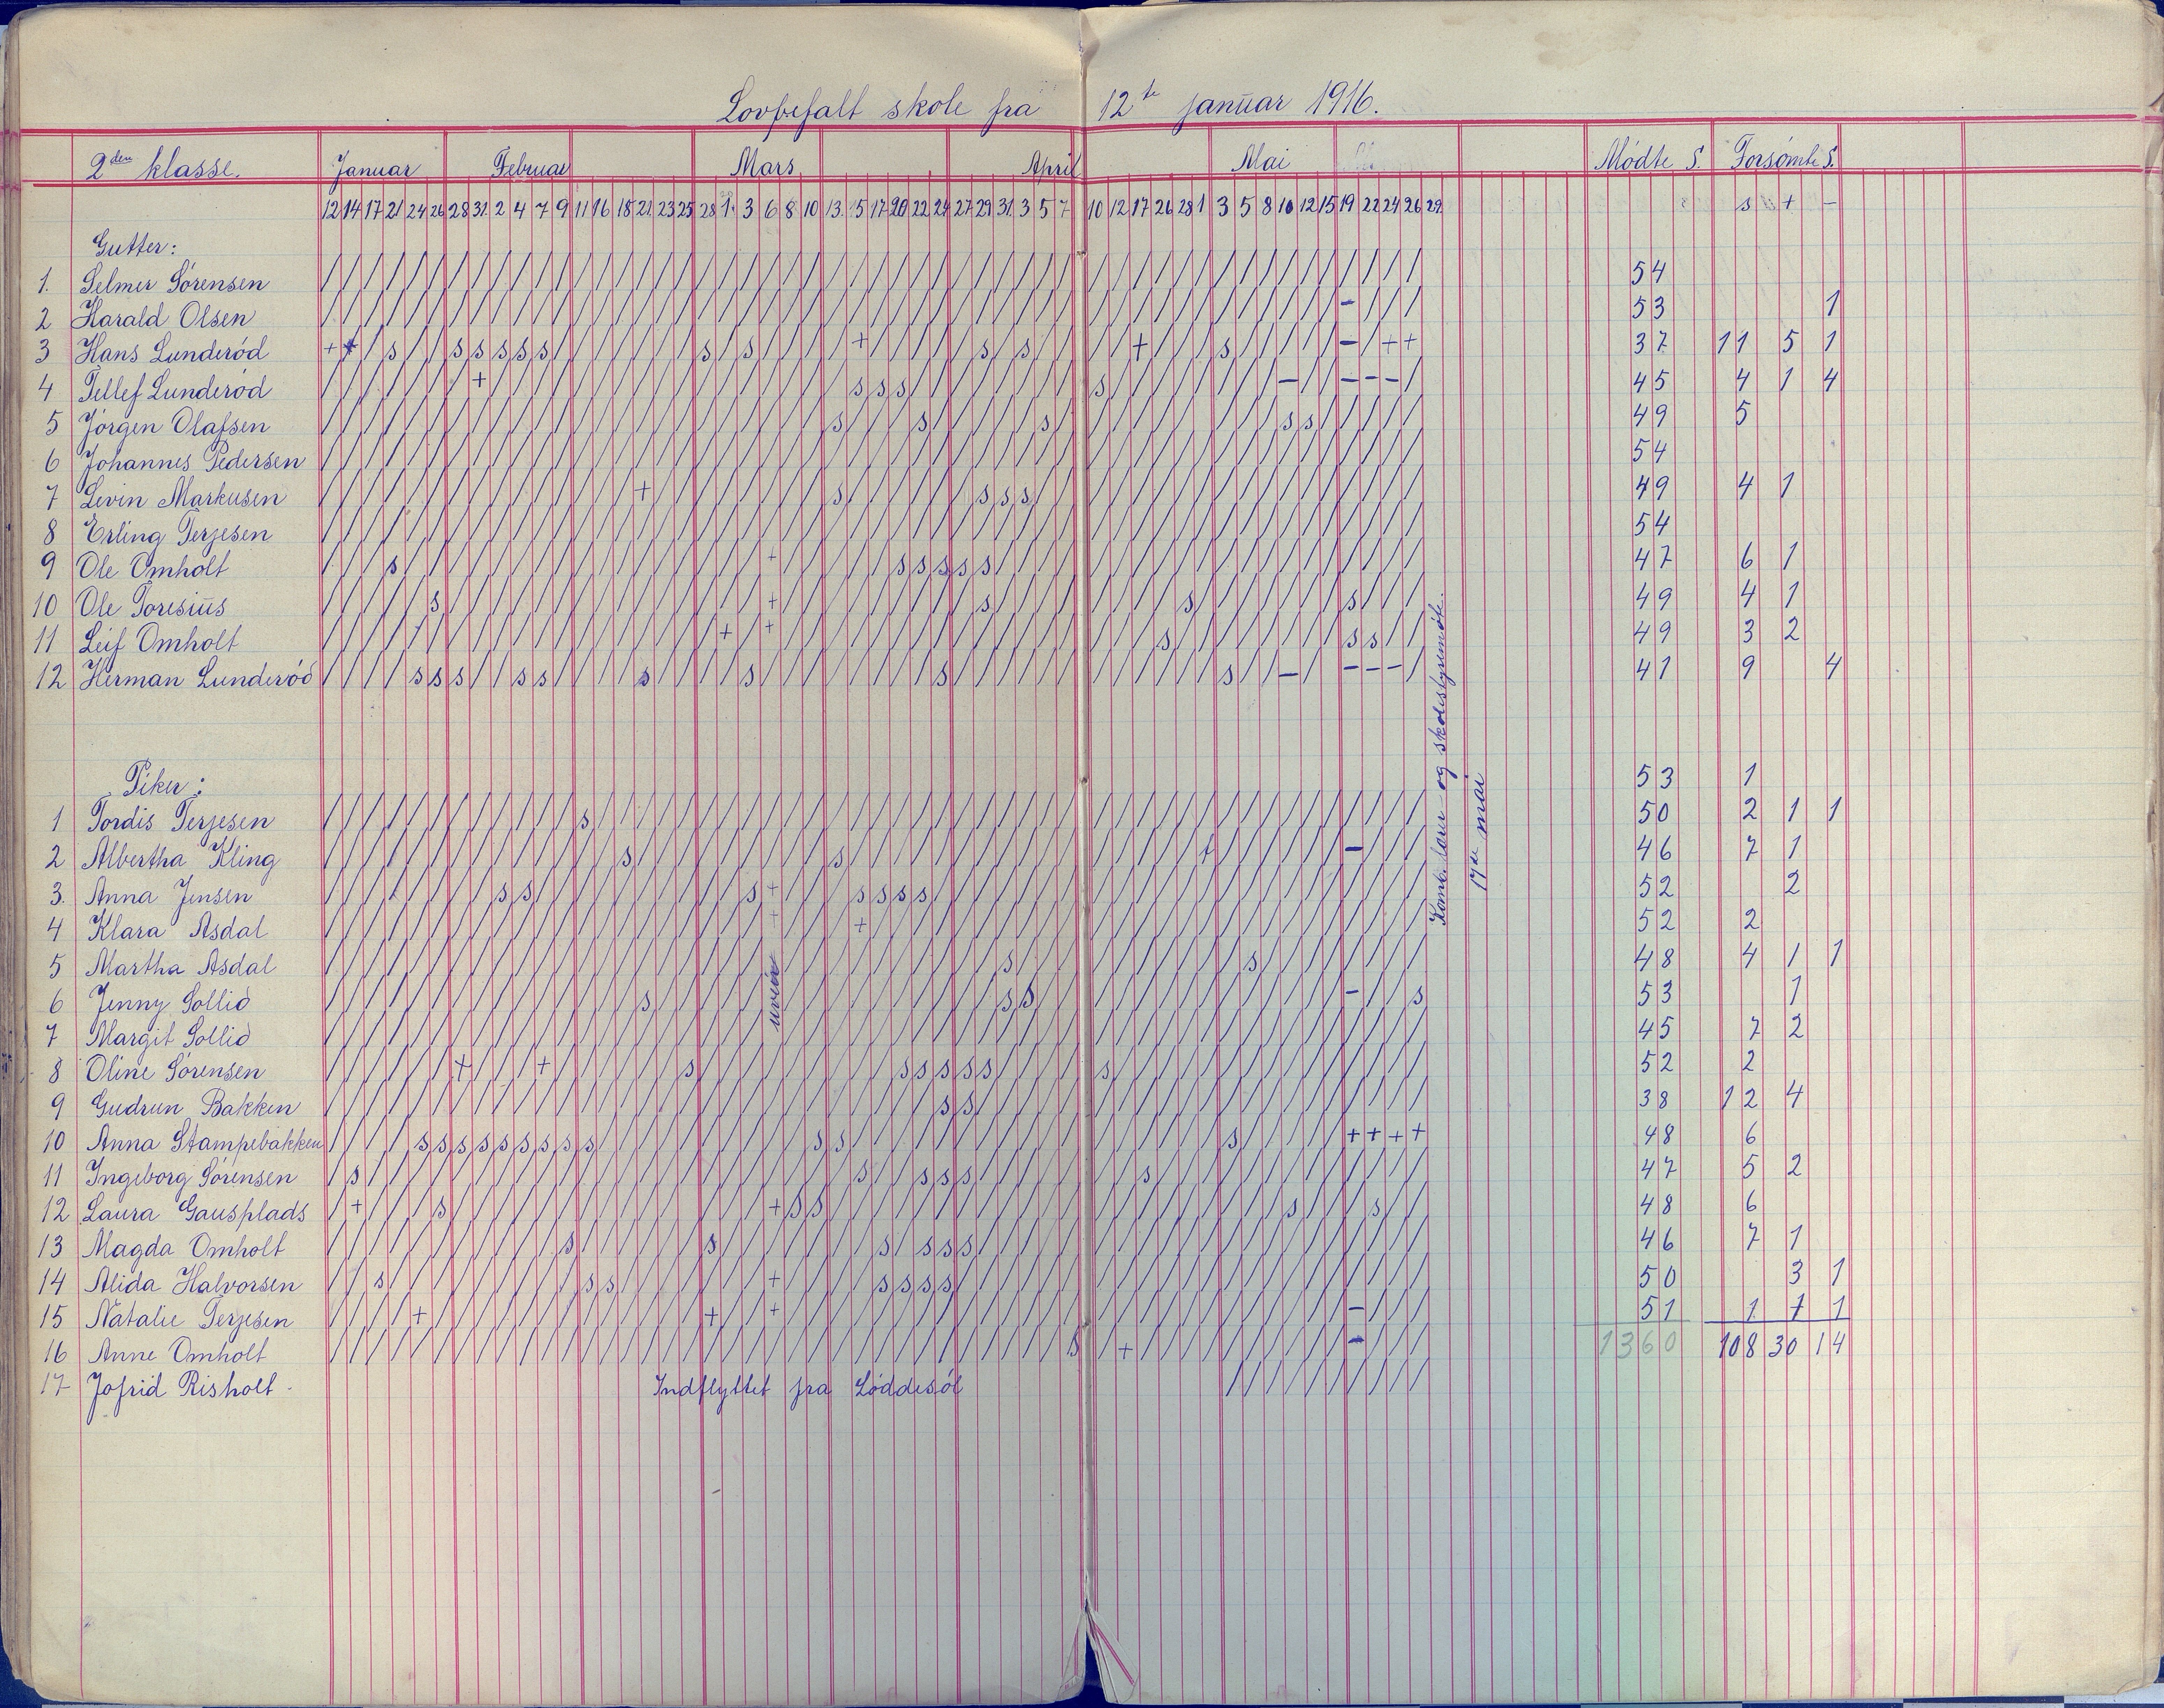 Lovbefalt skole fra 12te januar 1916.
2den klasse. Januar Februar Mars April Mai Mödte S. Forsömte S.
12 14 17 21 24 26 28 31 2 4 7 9 11 16 18 21 23 25 28 1 3 6 8 10 13 15 17 20 22 24 27 29 31 3 5 7 10 12 17 26 28 1 3 5 8 10 12 15 19 22 24 26 29 s + -
Gutter:
1. Selmer Sörensen 54
2 Harald Olsen - 53 1
3 Hans Lunderöd + + s s s s s s s s + s s + s - + + 37 11 5 1
4 Tellef Lunderöd + s s s s - - - - 45 4 1 4
5 Jörgen Olafsen s s s s s 49 5
6 Johannes Pedersen 54
7 Levin Markusen + s s s s 49 4 1
8 Erling Terjesen 54
9 Ole Omholt s + s s s s s 47 6 1
10 Ole Toresius s + s s s 49 4 1
11 Leif Omholt + + s s s 49 3 2
12 Herman Lunderöd s s s s s s s s s - - - - 41 9 4
Piker:
53 1
1 Tordis Terjesen s 50 2 1 1
2 Albertha Kling s s + - 46 7 1
3. Anna Jensen s s s + s s s s 52 2
4 Klara Asdal + + 52 2
5 Martha Asdal s s 48 4 1 1
6 Jenny Sollid s s s - s 53 1
7 Margit Sollid 45 7 2
8 Oline Sörensen + + s s s s s s s 52 2
9 Gudrun Bakken s s 38 12 4
10 Anna Stampebakken s s s s s s s s s s s s + + + + 48 6
11 Ingeborg Sörensen s s s s s s 47 5 2
12 Laura Gausplads + s + s s s s 48 6
13 Magda Omholt s s s s s s 46 7 1
14 Alida Halvorsen s s s + s s s s 50 3 1
15 Natalie Terjesen + + + - 51 1 7 1
16 Anne Omholt s + - 1360 108 30 14
17 Jofrid Risholt Indflyttet fra Löddesöl
uveir
Komb. lærer og skolestyremöte.
17de mai